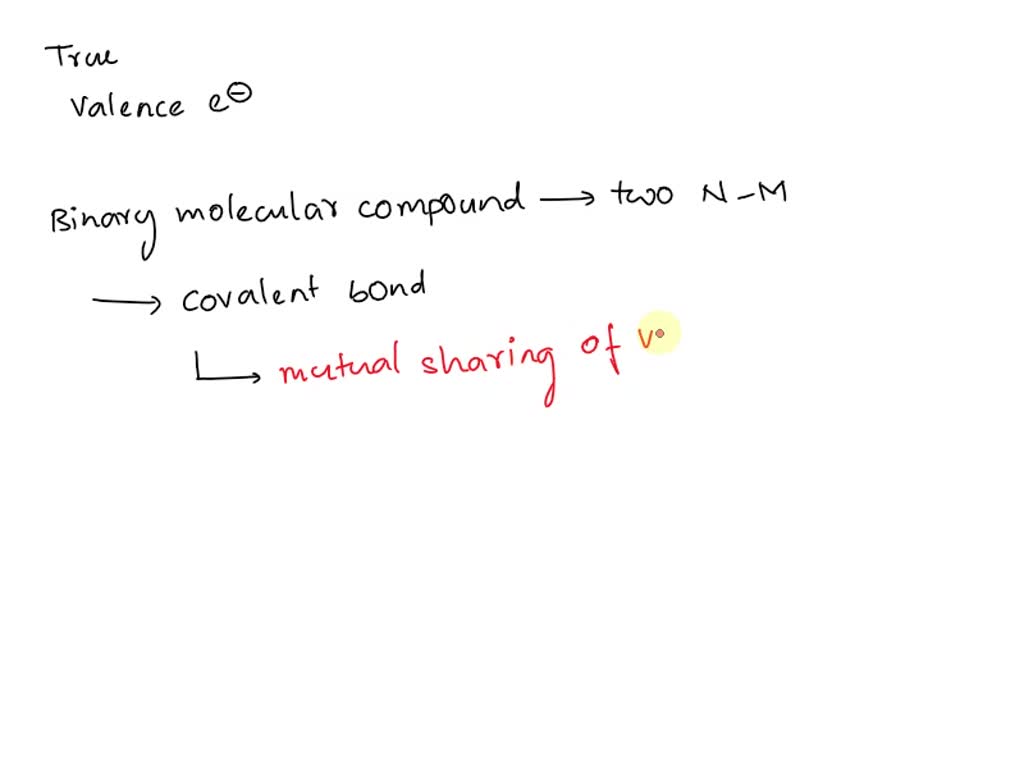 True
Valence e⊖
Binary molecular compound ⟶ two N-M
⟶ covalent bond
↳ mutual sharing of v